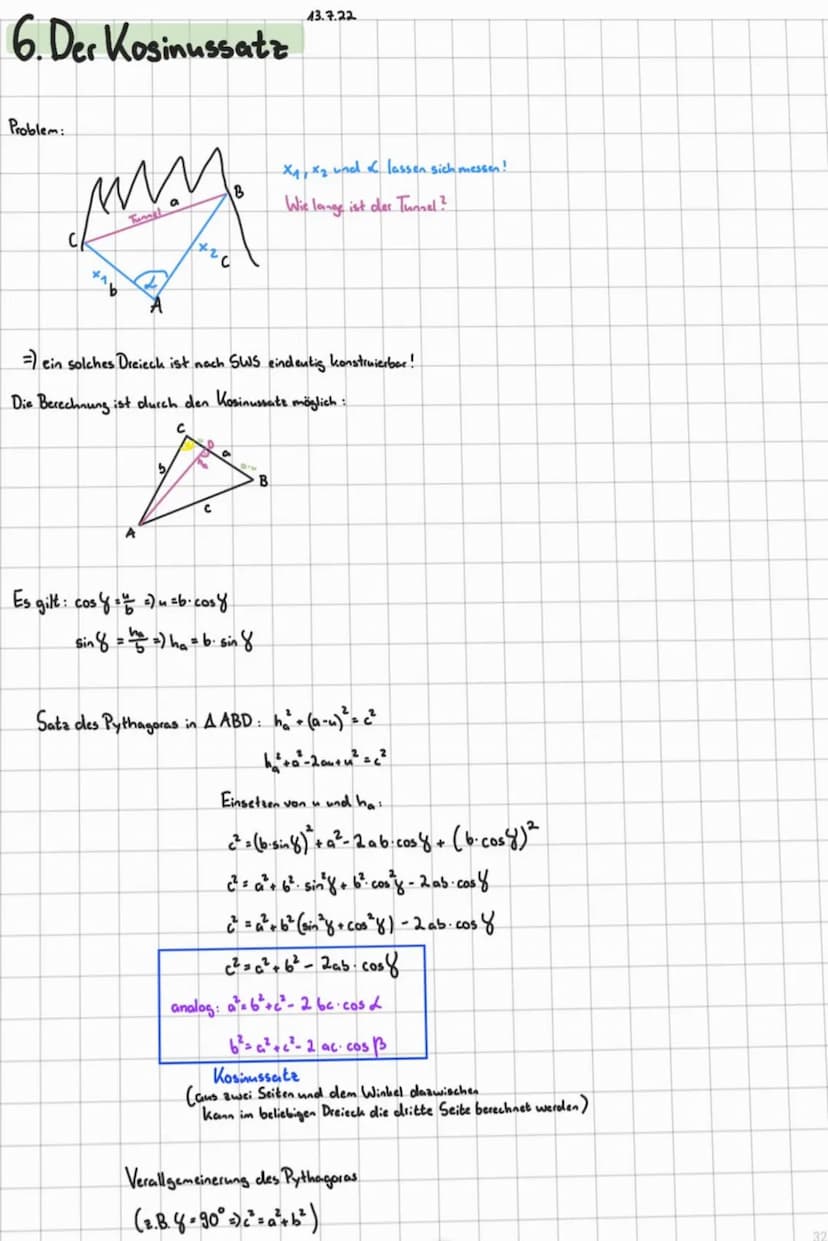 13.7.22
6. Der Kosinussatz
Problem:
x₁, x₂ und α lassen sich messen!
Wie lange ist der Tunnel?
B
a
Tunnel
C
x₂
c
x₁
b
α
A
=) ein solches Dreieck ist nach SWS eindeutig konstruierbar!
Die Berechnung ist durch den Kosinussatz möglich:
C
D
a
b
hₐ
B
c
A
Es gilt: cos γ = u/b =) u = b · cos γ
sin γ = hₐ/b =) hₐ = b · sin γ
Satz des Pythagoras in Δ ABD: hₐ² + (a-u)² = c²
hₐ² + a² - 2au + u² = c²
Einsetzen von u und hₐ:
c² = (b·sin γ)² + a² - 2ab·cos γ + (b·cos γ)²
c² = a² + b² · sin²γ + b² · cos²γ - 2ab·cos γ
c² = a² + b² (sin²γ + cos²γ) - 2ab·cos γ
c² = a² + b² - 2ab · cos γ
analog: a² = b² + c² - 2bc · cos α
b² = a² + c² - 2ac · cos β
Kosinussatz
(aus zwei Seiten und dem Winkel dazwischen
kann im beliebigen Dreieck die dritte Seite berechnet werden)
Verallgemeinerung des Pythagoras
(z.B. γ = 90° =) c² = a² + b²)
32